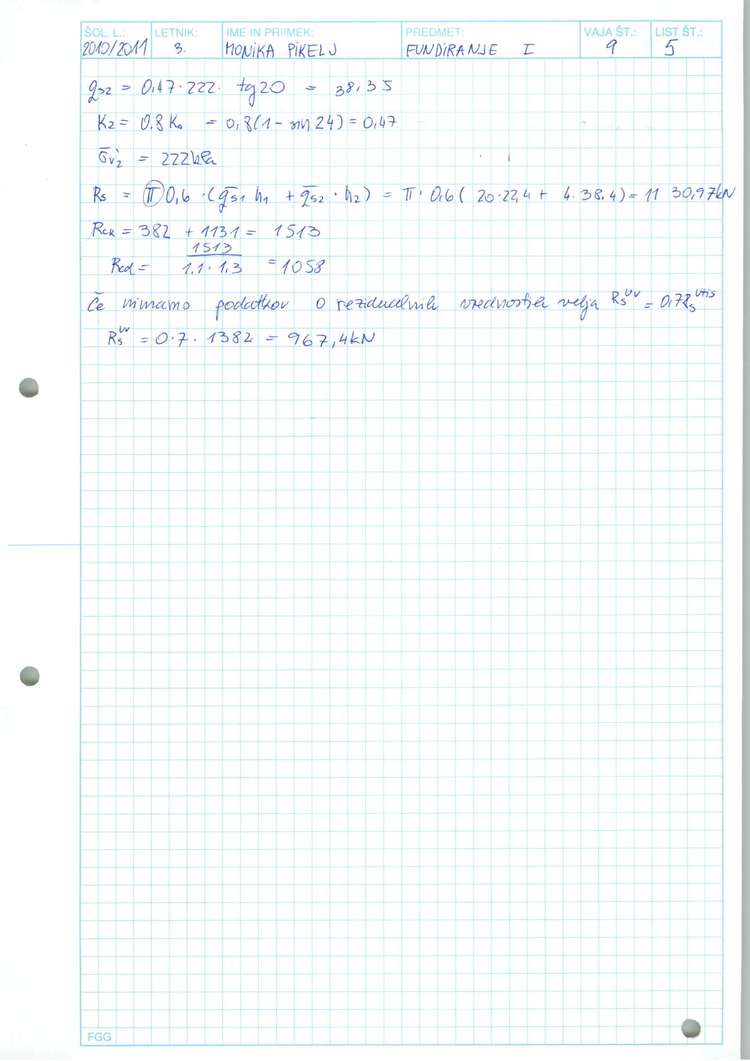 ŠOL. L.: LETNIK: IME IN PRIIMEK: PREDMET: VAJA ŠT.: LIST ŠT.:
2010/2011 3. MONIKA PIKELJ FUNDIRANJE I 9 5
qs2 = 0,47·222· tg20 = 38,35
K2 = 0.8 K0 = 0,8(1 - sin 24) = 0,47
σ̄v2' = 222kPa
Rs = π 0,6 · (q̄s1 h1 + q̄s2 · h2) = π· 0,6( 20·22,4 + 4·38.4) = 11 30,97kN
Rck = 382 + 1131 = 1513
Rcd = 1513 / 1.1 · 1.3 = 1058
Če nimamo podatkov o rezidualnih vrednostih velja Rs^uv = 0,7Rs^vtis
Rs^uv = 0.7 · 1382 = 967,4kN
FGG